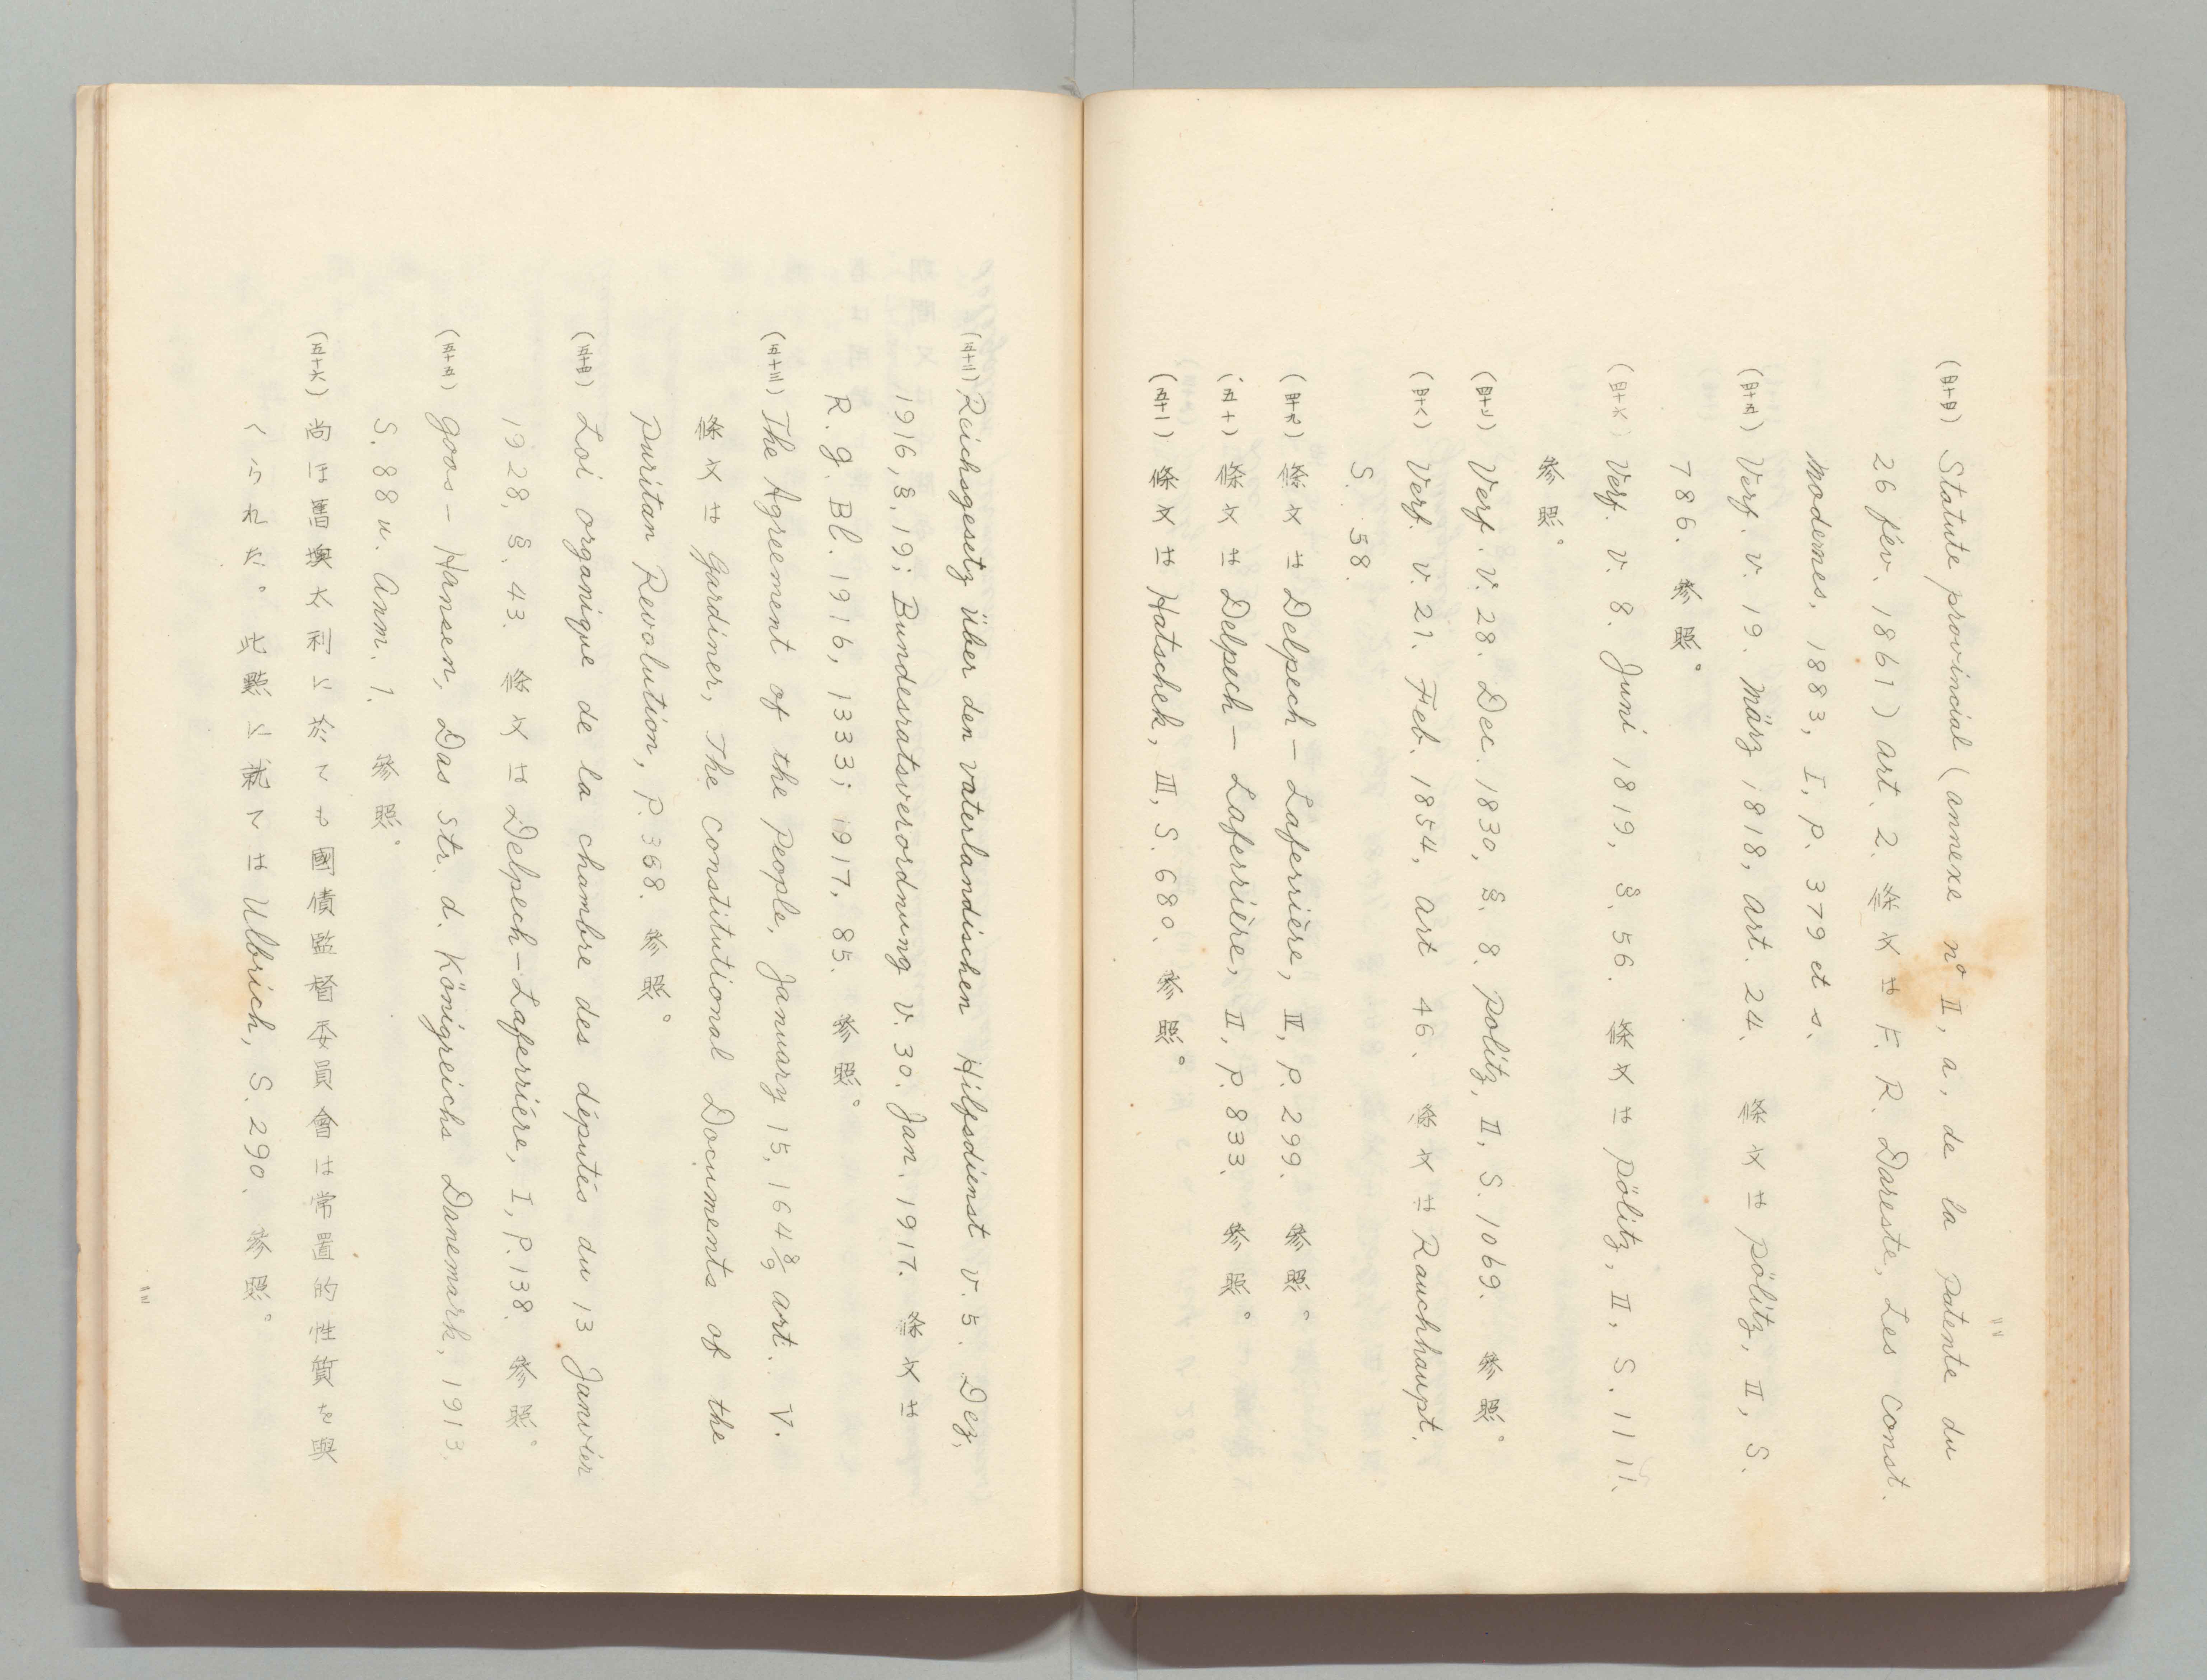 (四十四) Statute provincial (annexe nº II, a, de la Patente du
26 fév. 1861) art. 2. 條文は F. R. Dareste, Les Const.
modernes, 1883, I, P. 379 et s.
(四十五) Verf. v. 19. März 1818, art. 24. 條文は Pölitz, II, S.
786. 參照。
(四十六) Verf. v. 8. Juni 1819, §. 56. 條文は Pölitz, II, S. 1111.
參照。
(四十七) Verf. v. 28. Dec. 1830, §. 8. Politz, II, S. 1069. 參照。
(四十八) Verf. v. 21. Feb. 1854, art 46. 條文は Rauchhaupt.
S. 58.
(四十九) 條文は Delpech — Laferrière, II, P. 299. 參照。
(五十) 條文は Delpech — Laferrière, II, P. 833. 參照。
(五十一) 條文は Hatschek, III, S. 680. 參照。
(五十二) Reichsgesetz über den vaterlandischen Hilfsdienst v. 5. Dez.
1916, §. 19; Bundesratsverordnung v. 30. Jan. 1917. 條文は
R. G. Bl. 1916, 1333; 1917, 85. 參照。
(五十三) The Agreement of the People, January 15, 164 8/9 art. V.
條文は Gardiner, The Constitutional Documents of the
Puritan Revolution, P. 368. 參照。
(五十四) Loi organique de la chambre des députés du 13 Janvier
1928, §. 43. 條文は Delpech—Laferrière, I, P. 138. 參照。
(五十五) Goos — Hansen, Das Str. d. Königreichs Danemark, 1913.
S. 88 u. Anm. 1. 參照。
(五十六) 尚ほ舊墺太利に於ても國債監督委員會は常置的性質を與
くられた。此點に就ては Ulbrich, S. 290. 參照。